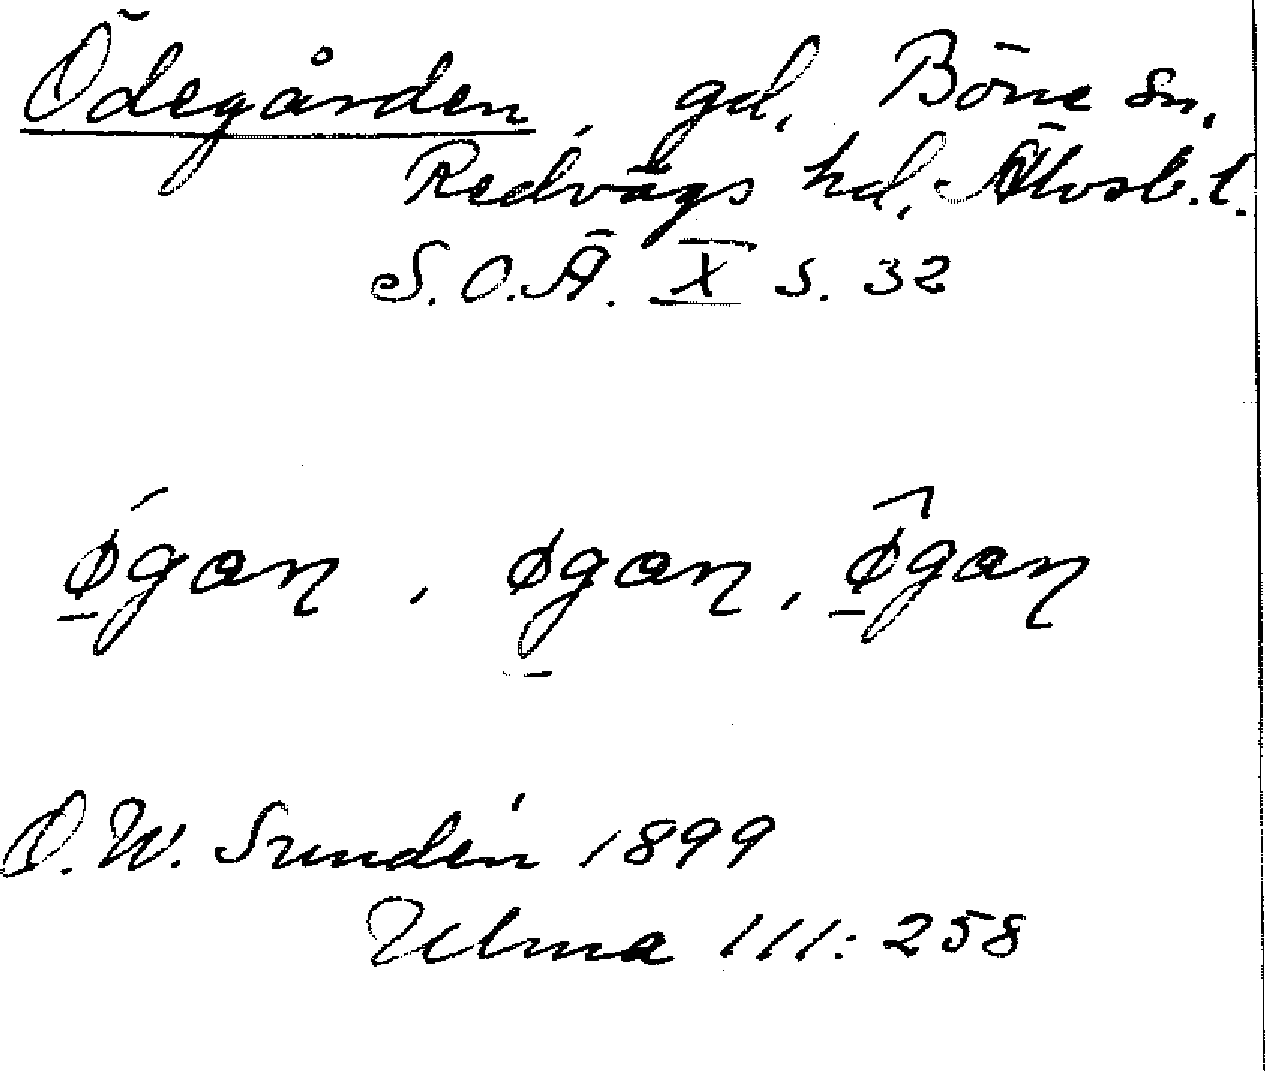 Ödegården, gd, Böne sn,
Redvägs hd, Älvsb. l.
S.O.Ä. X s. 32
ǿ̱gaɳ, øg̱aɳ, ø̱̂gaɳ
D. W. Sundén 1899
Ulma 111:258